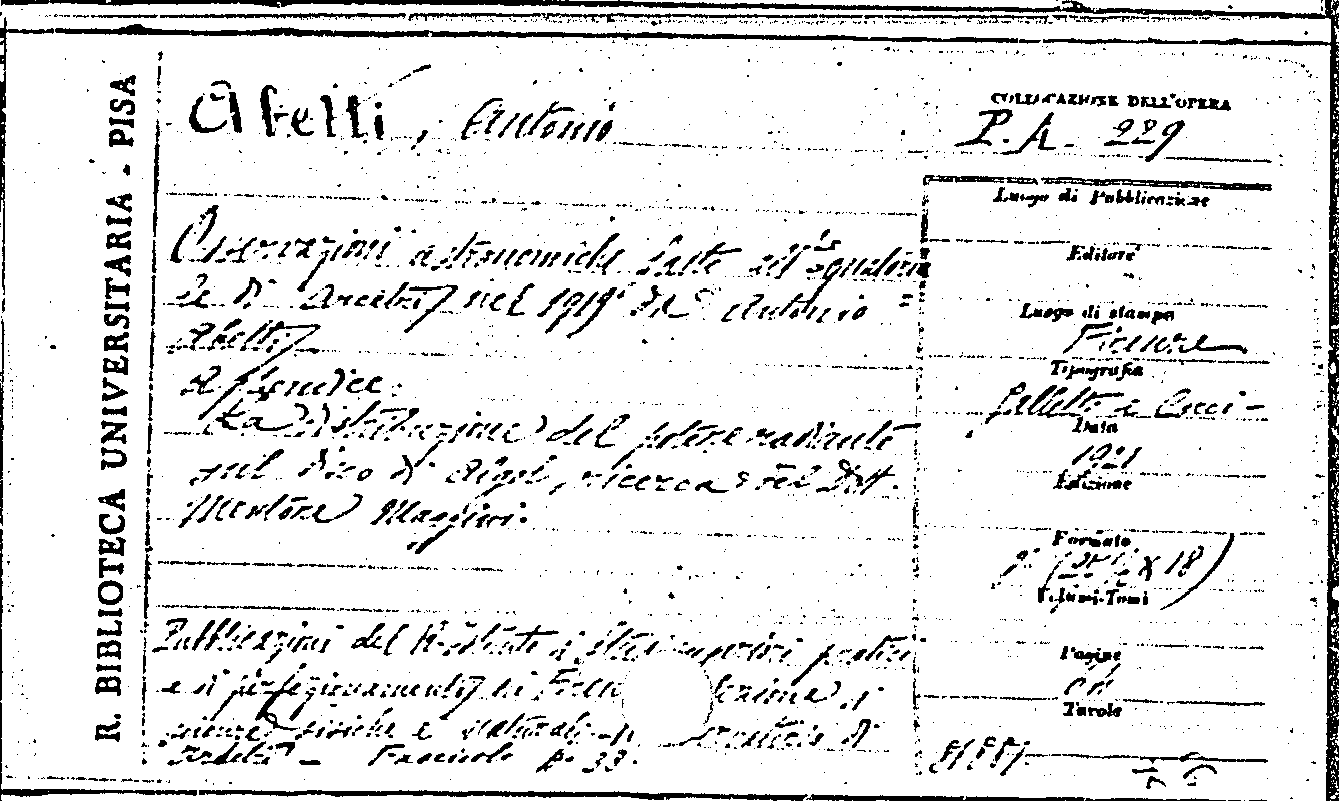 R. BIBLIOTECA UNIVERSITARIA - PISA
Abetti, Antonio
Osservazioni astronomiche fatte all'Equatoria
le di Arcetri nel 1919 da Antonio
Abetti
Appendice:
La distribuzione del potere radiante
sul disco di Algol, ricerca del Dott.
Mentore Maggini.
Pubblicazioni del R. Istituto di Studi superiori pratici
e di perfezionamento in
scienze fisiche e naturali
Arcetri - Fascicolo n. 38.
COLLOCAZIONE DELL'OPERA
P.A. 229
Luogo di Pubblicazione
Editore
Luogo di stampa
Firenze
Tipografia
Galletti e Cocci
Data
1921
Edizione
Formato
8° x 18)
Volumi-Tomi
Pagine
Tavole